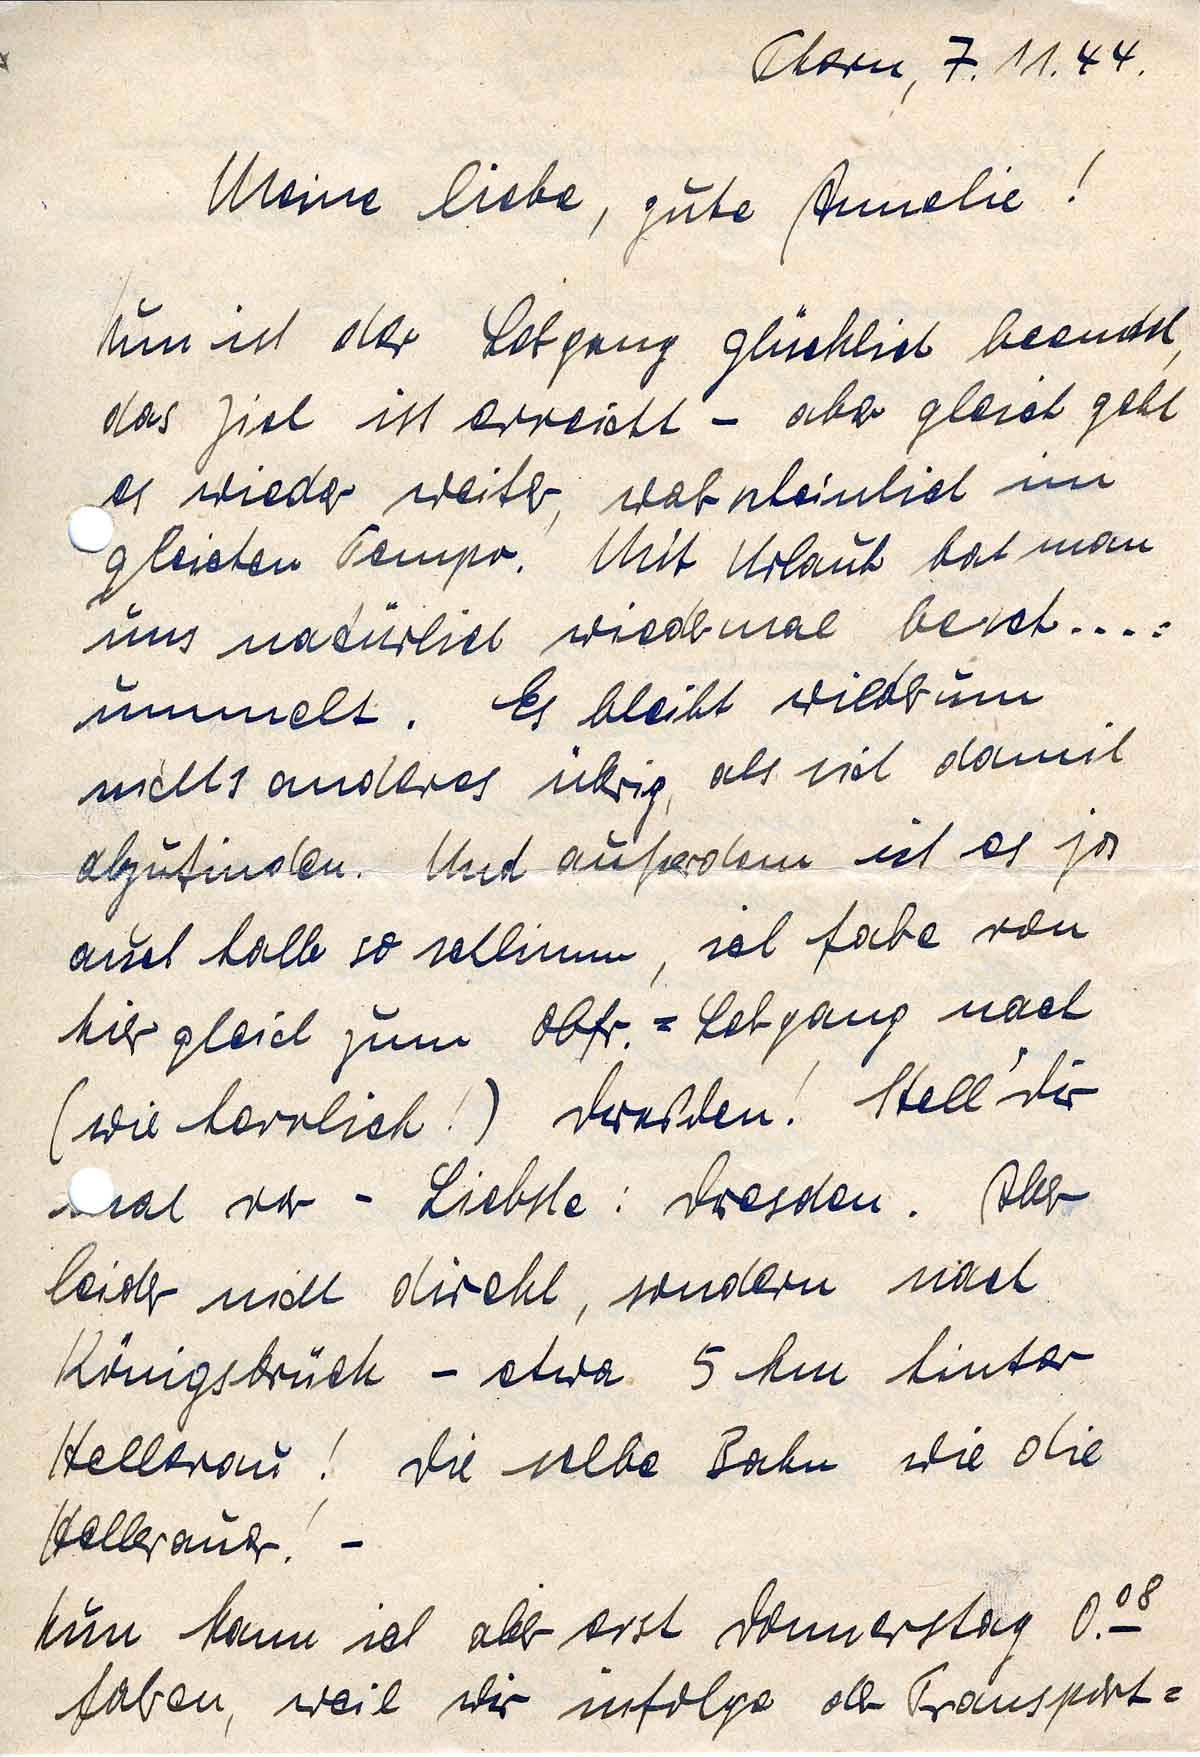 Thorn, 7. 11. 44.
Meine liebe, gute Annelie!
Nun ist der Lehrgang glücklich beendet,
das Ziel ist erreicht - aber gleich geht
es wieder weiter, wahrscheinlich im
gleichen Tempo. Mit Urlaub hat man
uns natürlich wiedermal besch....=
ummelt. Es bleibt wiederum
nichts anderes übrig, als sich damit
abzufinden. Und außerdem ist es ja
auch halb so schlimm, ich fahre von
hier gleich zum Obfr.=Lehrgang nach
(wie herrlich!) Dresden! Stell' Dir
mal vor - Liebste: Dresden. Aber
leider nicht direkt, sondern nach
Königsbrück - etwa 5 km hinter
Hellerau! Die selbe Bahn wie die
Hellerauer! -
Nun kann ich aber erst Donnerstag 0.08
fahren, weil wir infolge der Transport=